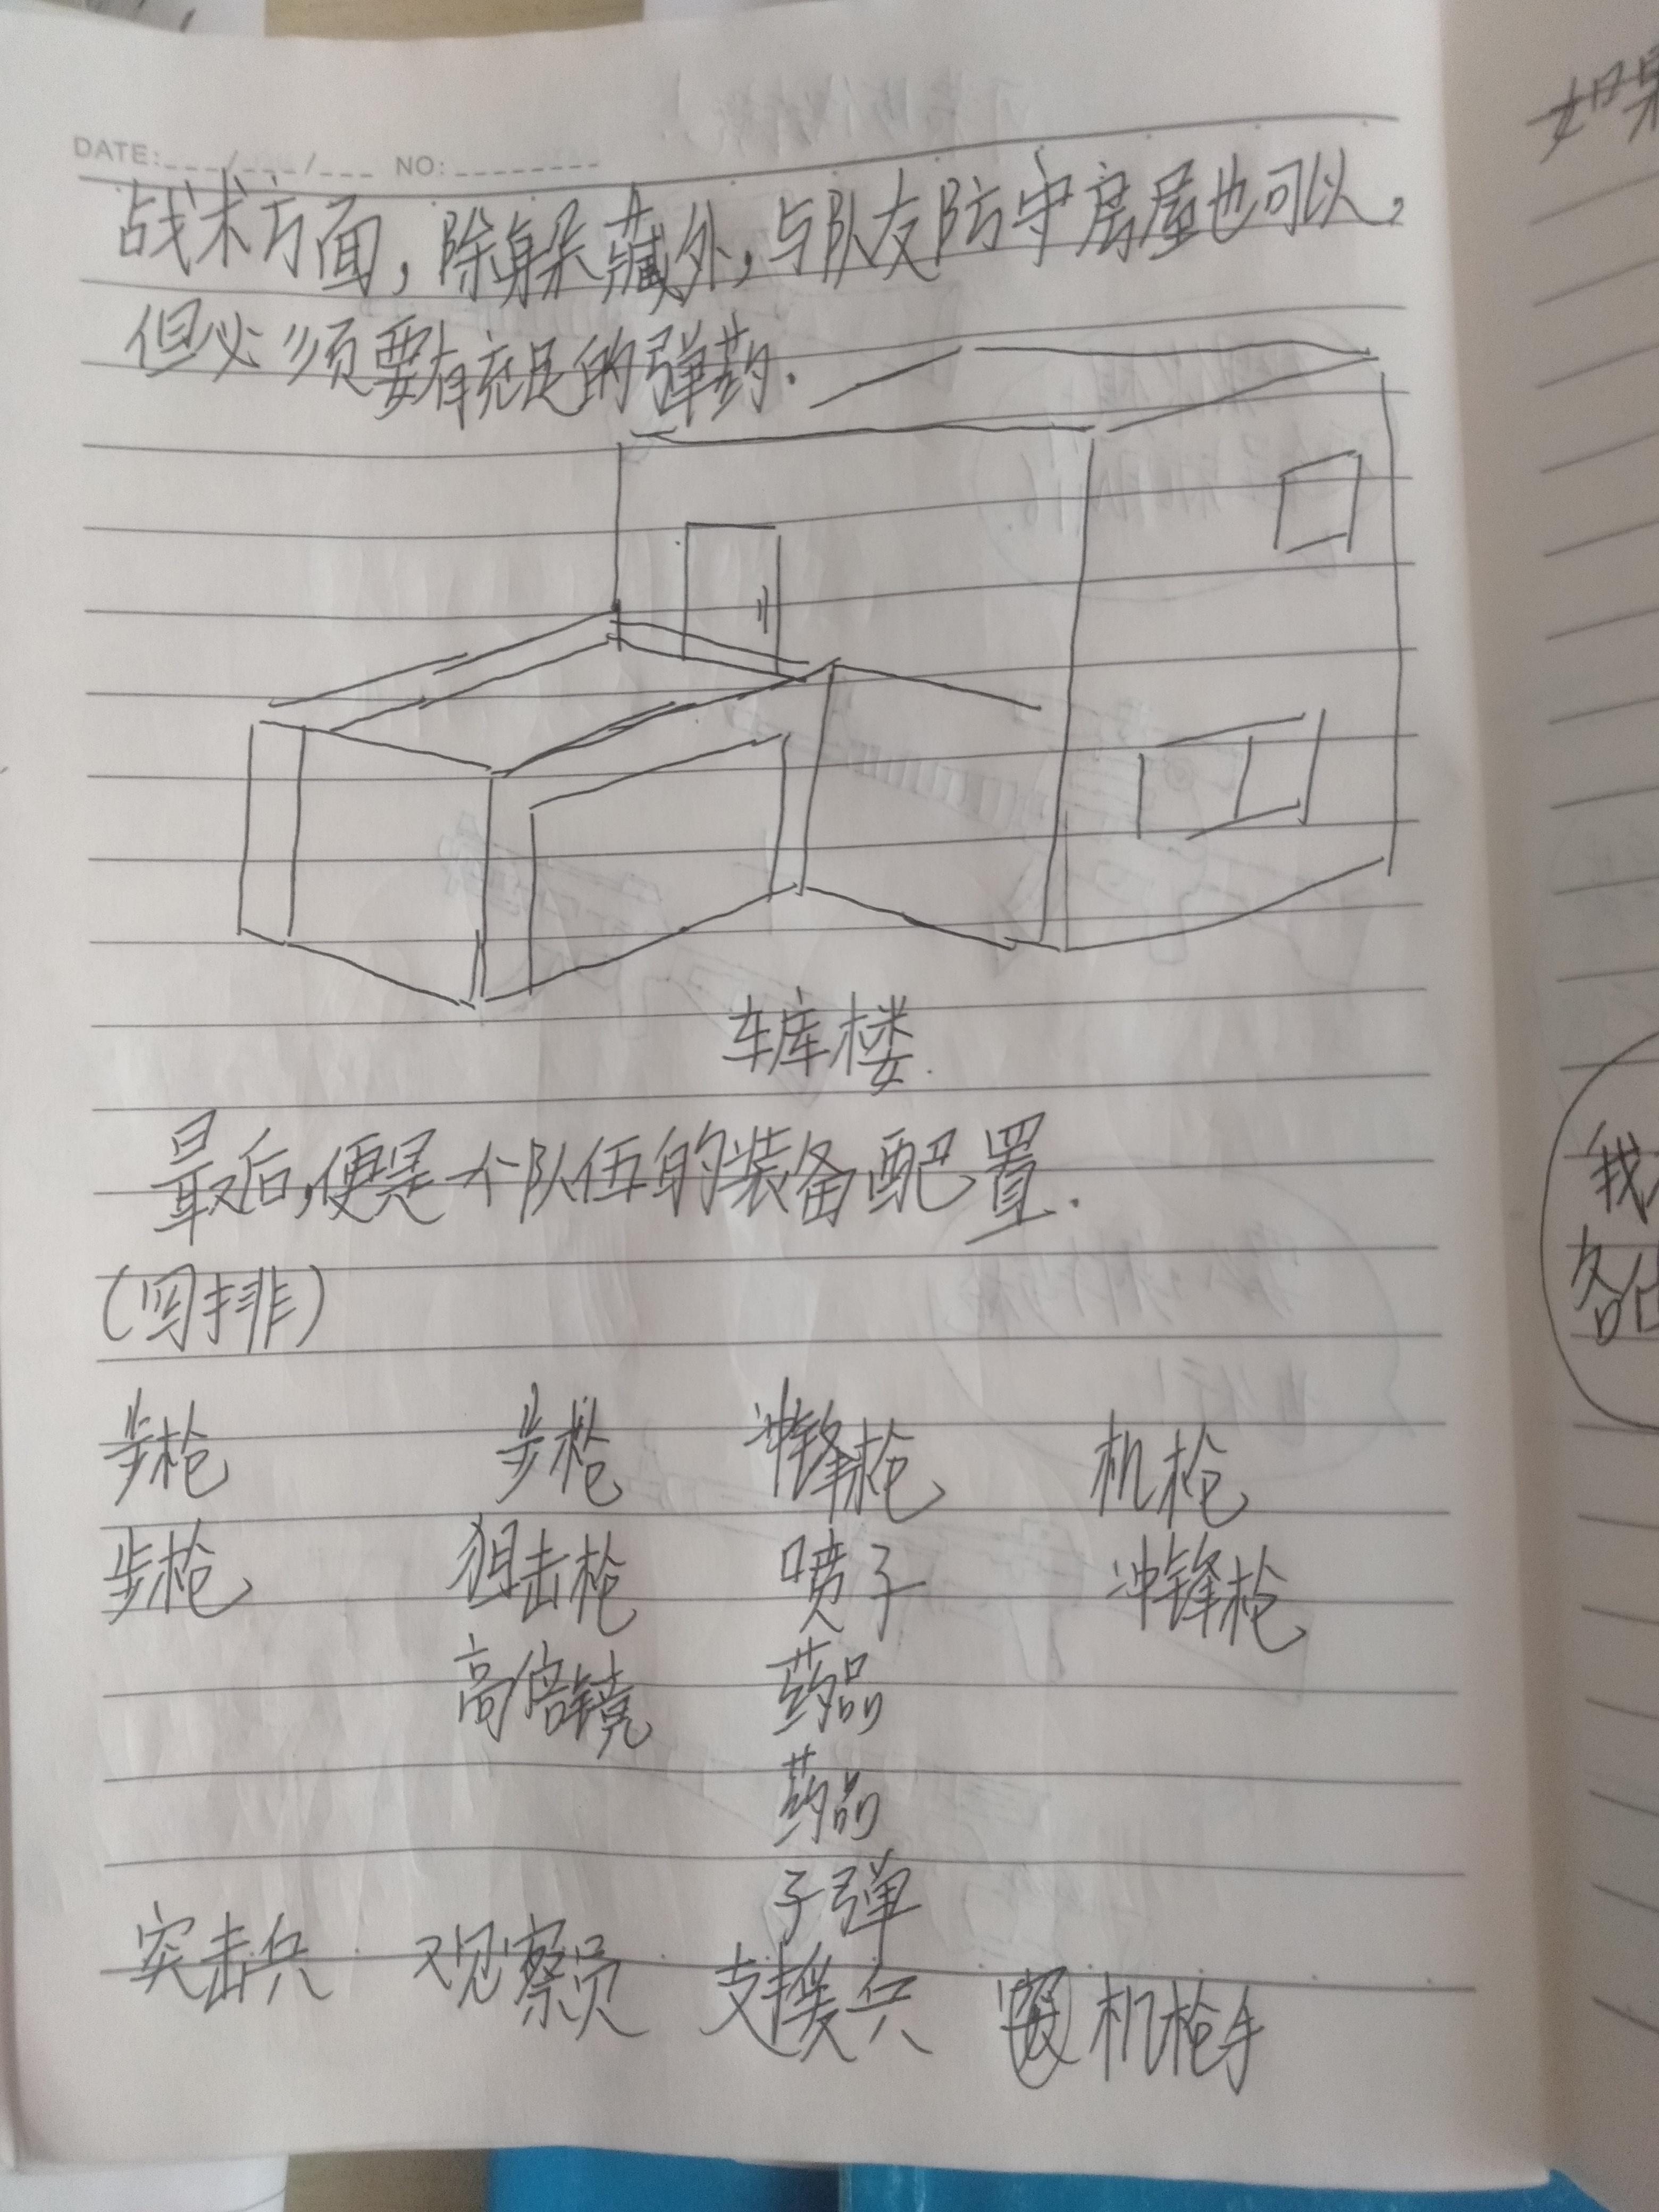 DATE: / / NO:
战术方面，除躲藏外，与队友防守房屋也可以，
但必须要有充足的弹药.
车库楼.
最后，便是一个队伍的装备配置.
(四排)
步枪 步枪 冲锋枪 机枪
步枪 狙击枪 喷子 冲锋枪
高倍镜 药品
药品
子弹
突击兵 观察员 支援兵 机枪手
如果
我
各